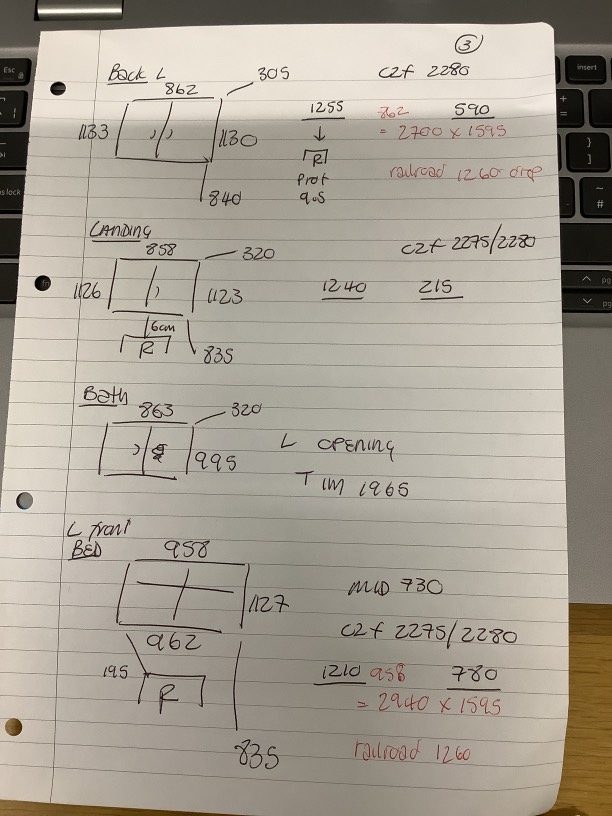 3
Back L
305
c2f 2280
862
1255
862
590
1133
1130
= 2700 x 1595
R
Prot
railroad 1260 drop
9.5
840
LANDING
858
320
c2f 2275/2280
1126
1123
1240
215
6cm
R
835
Bath
863
320
995
L OPENING
T IM 1965
L front
BED
958
MID 730
1127
c2f 2275/2280
962
195
1210
958
780
R
= 2940 x 1595
835
railroad 1260
Esc
insert
s lock
fn
+
=
}
]
~
#
pg
pg